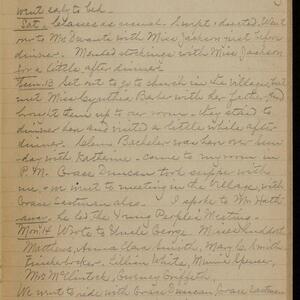 went early to bed.
Sat. Classes as usual. Swept & dusted. Went
over to Mrs Ewarts with Miss Jackson just before
dinner. Mended stockings with Miss Jackson
for a little after dinner.
Sun. 13 Set out to go to church in the Village, but
met Miss Cynthia Barber with her father. And
brought them up to our room – they staid to
dinner here and visited a little while after
dinner. Helen Bachelor was here over Sun-
day with Katherine – came to my room in
P.M. Grace Duncan took supper with
me, & we went to meeting in the Village, with
Grace Eastman also. I spoke to Mr. Hath-
away, he led the Young People's Meeting.
Mon. 14 Wrote to Uncle George. Misses
Matthews, Anna Clara Smith, Mary C. Smith
Lillian White, Minnie Spencer,
Mrs McClintock, Gurney Griffith.
We went to ride with Grace Duncan, Grace Eastman